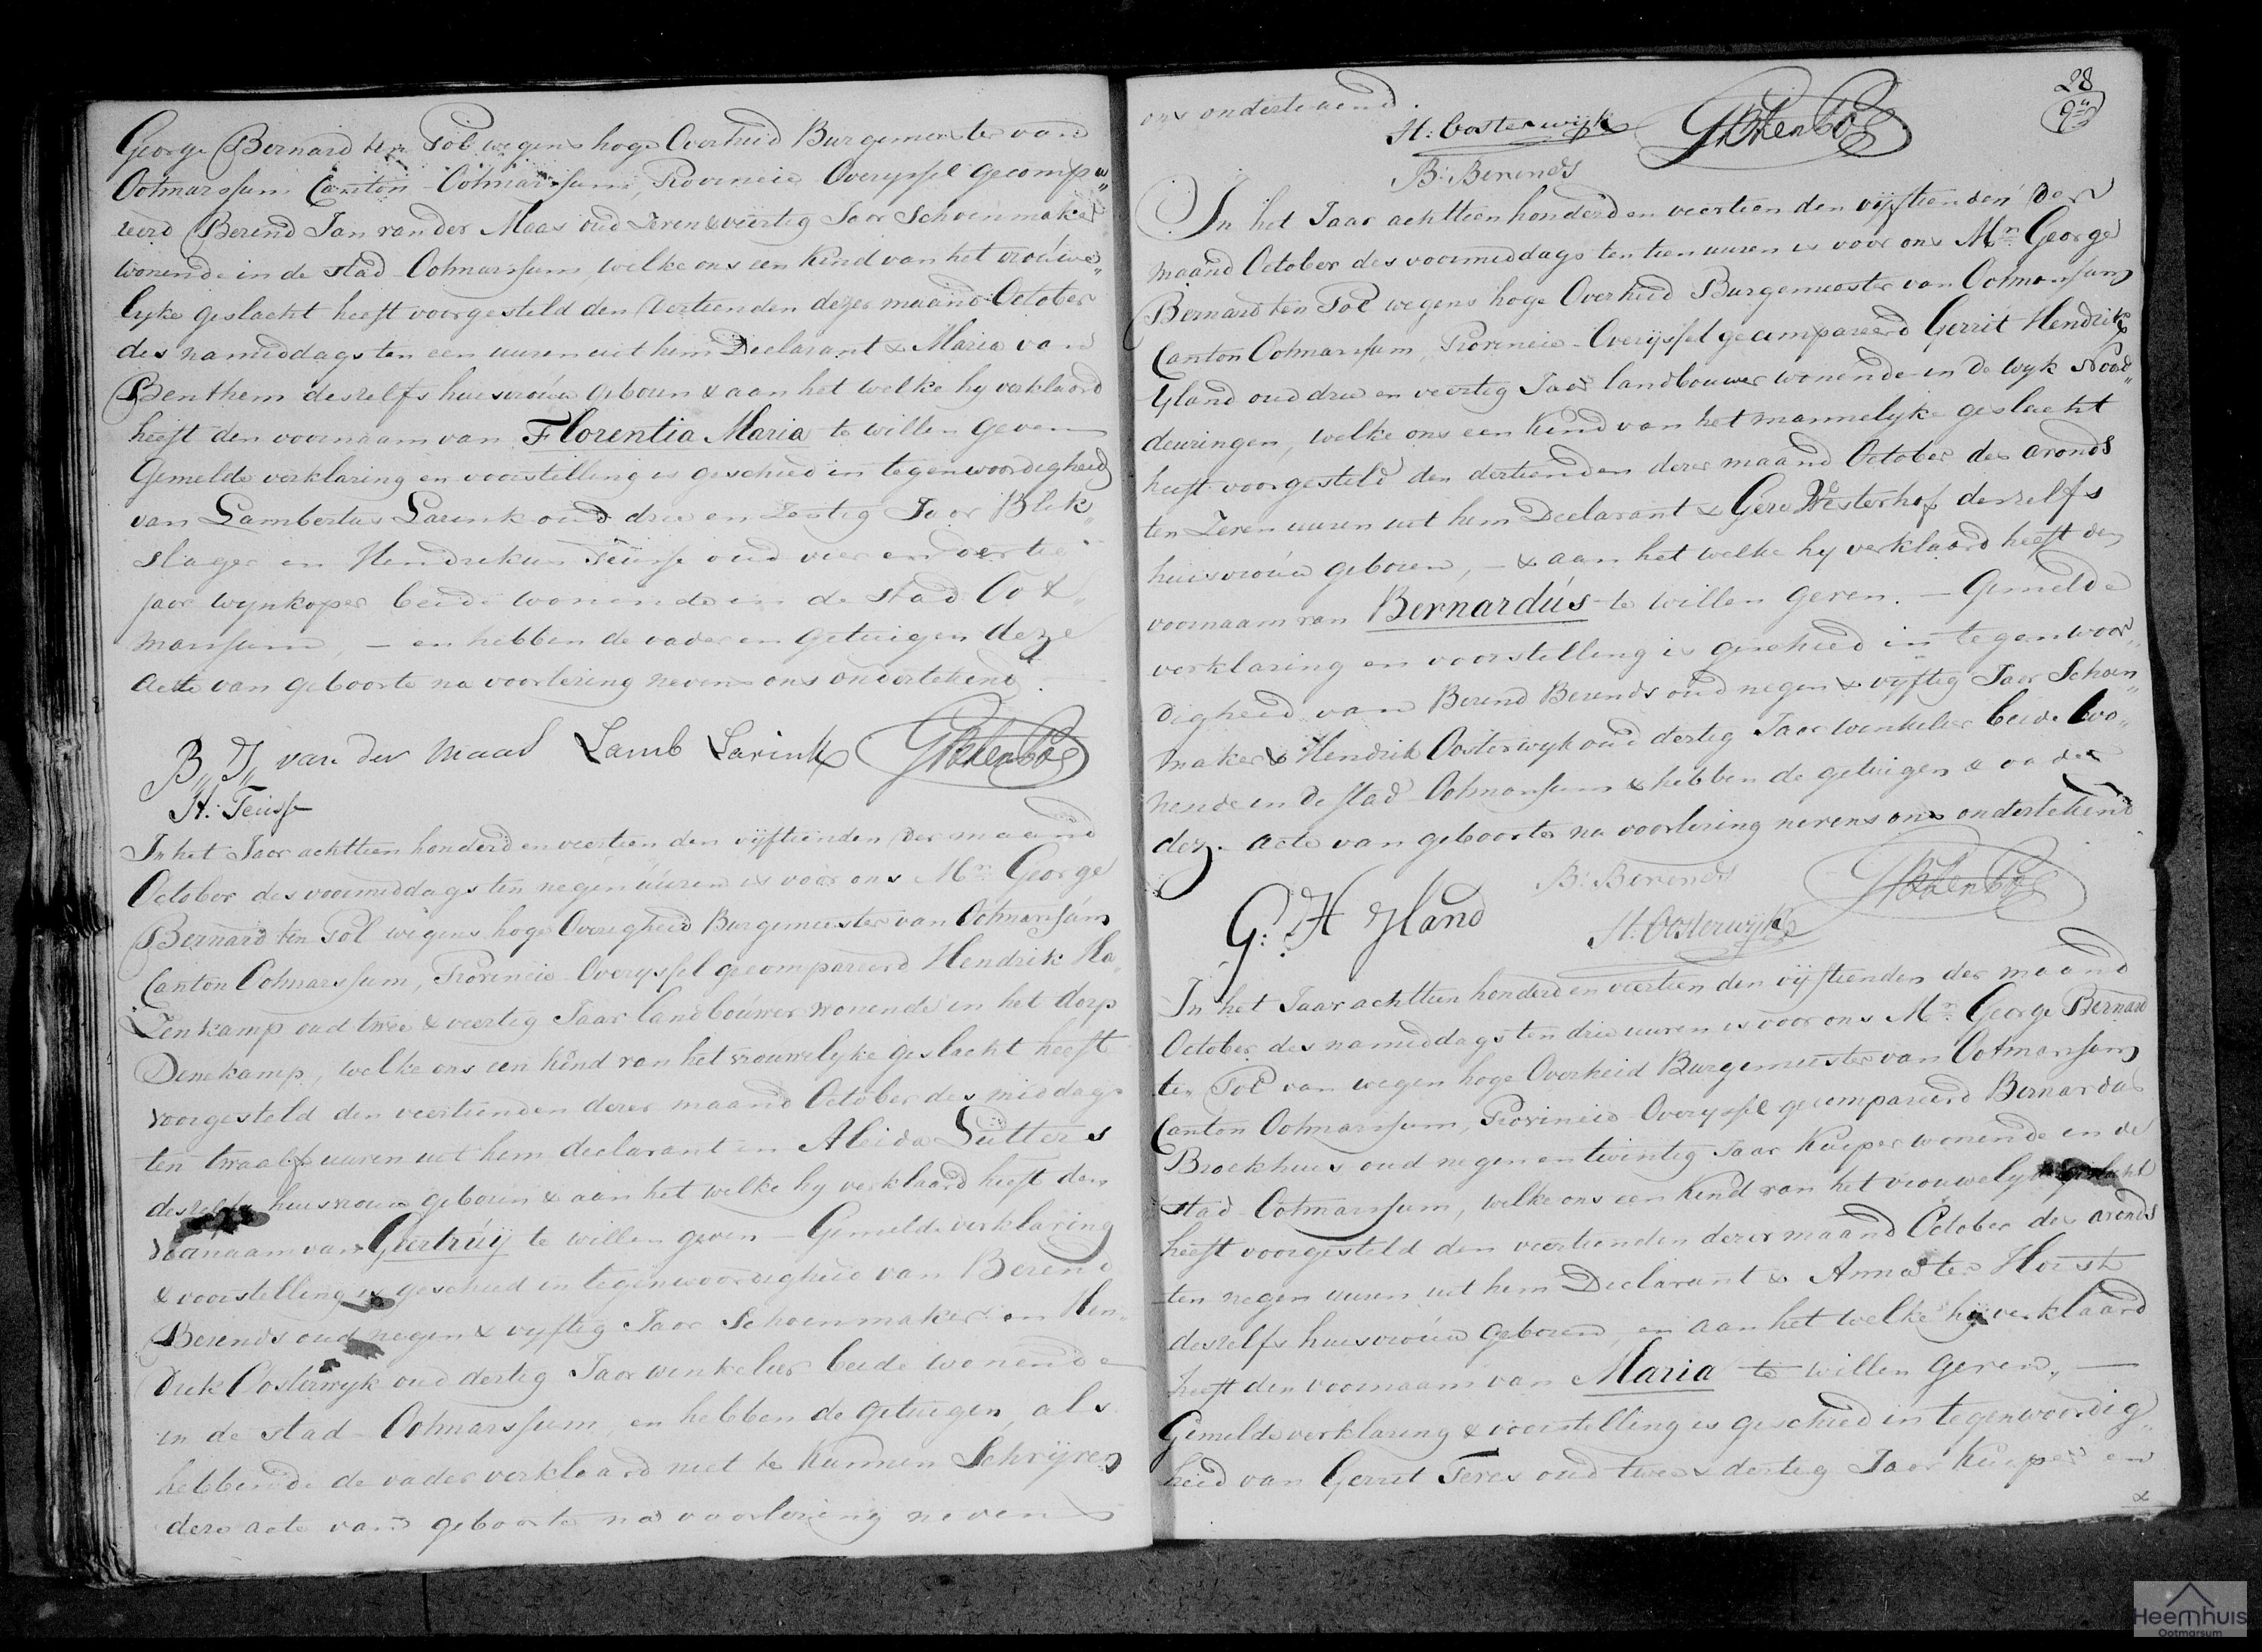 George Bernard ten Pol wegens hoge Overheid Burgemeester van
Ootmarssum Canton Ootmarssum, Provincie Overyssel gecompa„
reerd Berend Jan van der Maas oud Zeven & veertig Jaar Schoenmaker
wonende in de stad Ootmarssum, welke ons een Kind van het vrouwe„
lyke geslacht heeft voorgesteld den veertienden dezer maand October
des namiddags ten een uuren uit hem Declarant & Maria van
Benthem deszelfs huisvrouw geboren & aan het welke hy verklaard
heeft den voornaam van Florentia Maria te willen geven
Gemelde verklaring en voorstelling is geschied in tegenwoordigheid
van Lambertus Larink oud drie en Zestig Jaar Blik„
slager en Hendrikus Teusse oud vier en veertig
jaar wynkoper beide wonende in de stad Oot„
marssum, — en hebben de vader en getuigen deze
acte van geboorte na voorlezing nevens ons ondertekend.
B„ J„ van der Maas Lamb Larink GBtenPol
H: Teusse
In het Jaar achttien honderd en veertien den vyftienden der maand
October des voormiddags ten negen uuren is voor ons Mr. George
Bernard ten Pol wegens hoge Overigheid Burgemeester van Ootmarssum
Canton Ootmarssum, Provincie Overyssel gecompareerd Hendrik Ha„
Zenkamp oud twee & veertig Jaar landbouwer wonende in het dorp
Denekamp, welke ons een kind van het vrouwelyke geslacht heeft
voorgesteld den veertienden dezer maand October des middags
ten twaalf uuren uit hem declarant en Aleida Lutters
deszelfs huisvrouw geboren & aan het welke hy verklaard heeft den
voornaam van Geertruy te willen geven — Gemelde verklaring
& voorstelling is geschied in tegenwoordigheid van Berend
Berends oud negen & vyftig Jaar Schoenmaker en Hen„
drik Oosterwyk oud dertig Jaar winkelier beide wonende
in de stad Ootmarssum, en hebben de getuigen, als
hebbende de vader verklaard niet te kunnen Schryven
deze acte van geboorte na voorlezing nevens
28
ons ondertekend.
H: Oosterwijk GBtenPol
B: Berends
In het Jaar achttien honderd en veertien den vyftienden der
maand October des voormiddags ten tien uuren is voor ons Mr. George
Bernard ten Pol wegens hoge Overheid Burgemeester van Ootmarssum
Canton Ootmarssum, Provincie Overijssel gecompareerd Gerrit Hendrik
Yland oud drie en veertig Jaar landbouwer wonende in de wyk Nood„
deuringen, welke ons een Kind van het mannelyke geslacht
heeft voorgesteld den dertienden dezer maand October des avonds
ten Zeven uuren uit hem Declarant & Gere Westerhof deszelfs
huisvrouw geboren, — & aan het welke hy verklaard heeft den
voornaam van Bernardus te willen geven. — Gemelde
verklaring en voorstelling is geschied in tegenwoor„
digheid van Berend Berends oud negen & vyftig Jaar Schoen„
maker & Hendrik Oosterwyk oud dertig Jaar winkelier beide wo„
nende in de stad Ootmarssum & hebben de getuigen & vader
deze acte van geboorte na voorlezing nevens ons ondertekend
B: Berends GBtenPol
G: H Yland
H: Oosterwijk
In het Jaar achttien honderd en veertien den vyftienden der maand
October des namiddags ten drie uuren is voor ons Mr. George Bernard
ten Pol van wegen hoge Overheid Burgemeester van Ootmarssum
Canton Ootmarssum, Provincie Overyssel gecompareerd Bernardus
Broekhuis oud negen en twintig Jaar Kuiper wonende in de
stad Ootmarssum, welke ons een Kind van het vrouwelyk geslacht
heeft voorgesteld den veertienden dezer maand October des avonds
ten negen uuren uit hem Declarant & Anna ter Horst
deszelfs huisvrouw geboren, en aan het welke hy verklaard
heeft den voornaam van Maria te willen geven. —
Gemelde verklaring & voorstelling is geschied in tegenwoordig„
heid van Gerrit Feres oud twee & dertig Jaar Kuiper en
Heemhuis
Ootmarsum